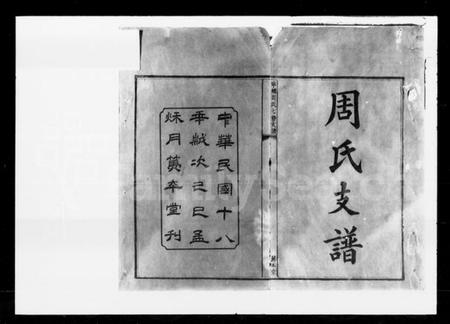 周氏支譜
中華民國十八
年歲次己巳孟
秋月莫卒堂刊